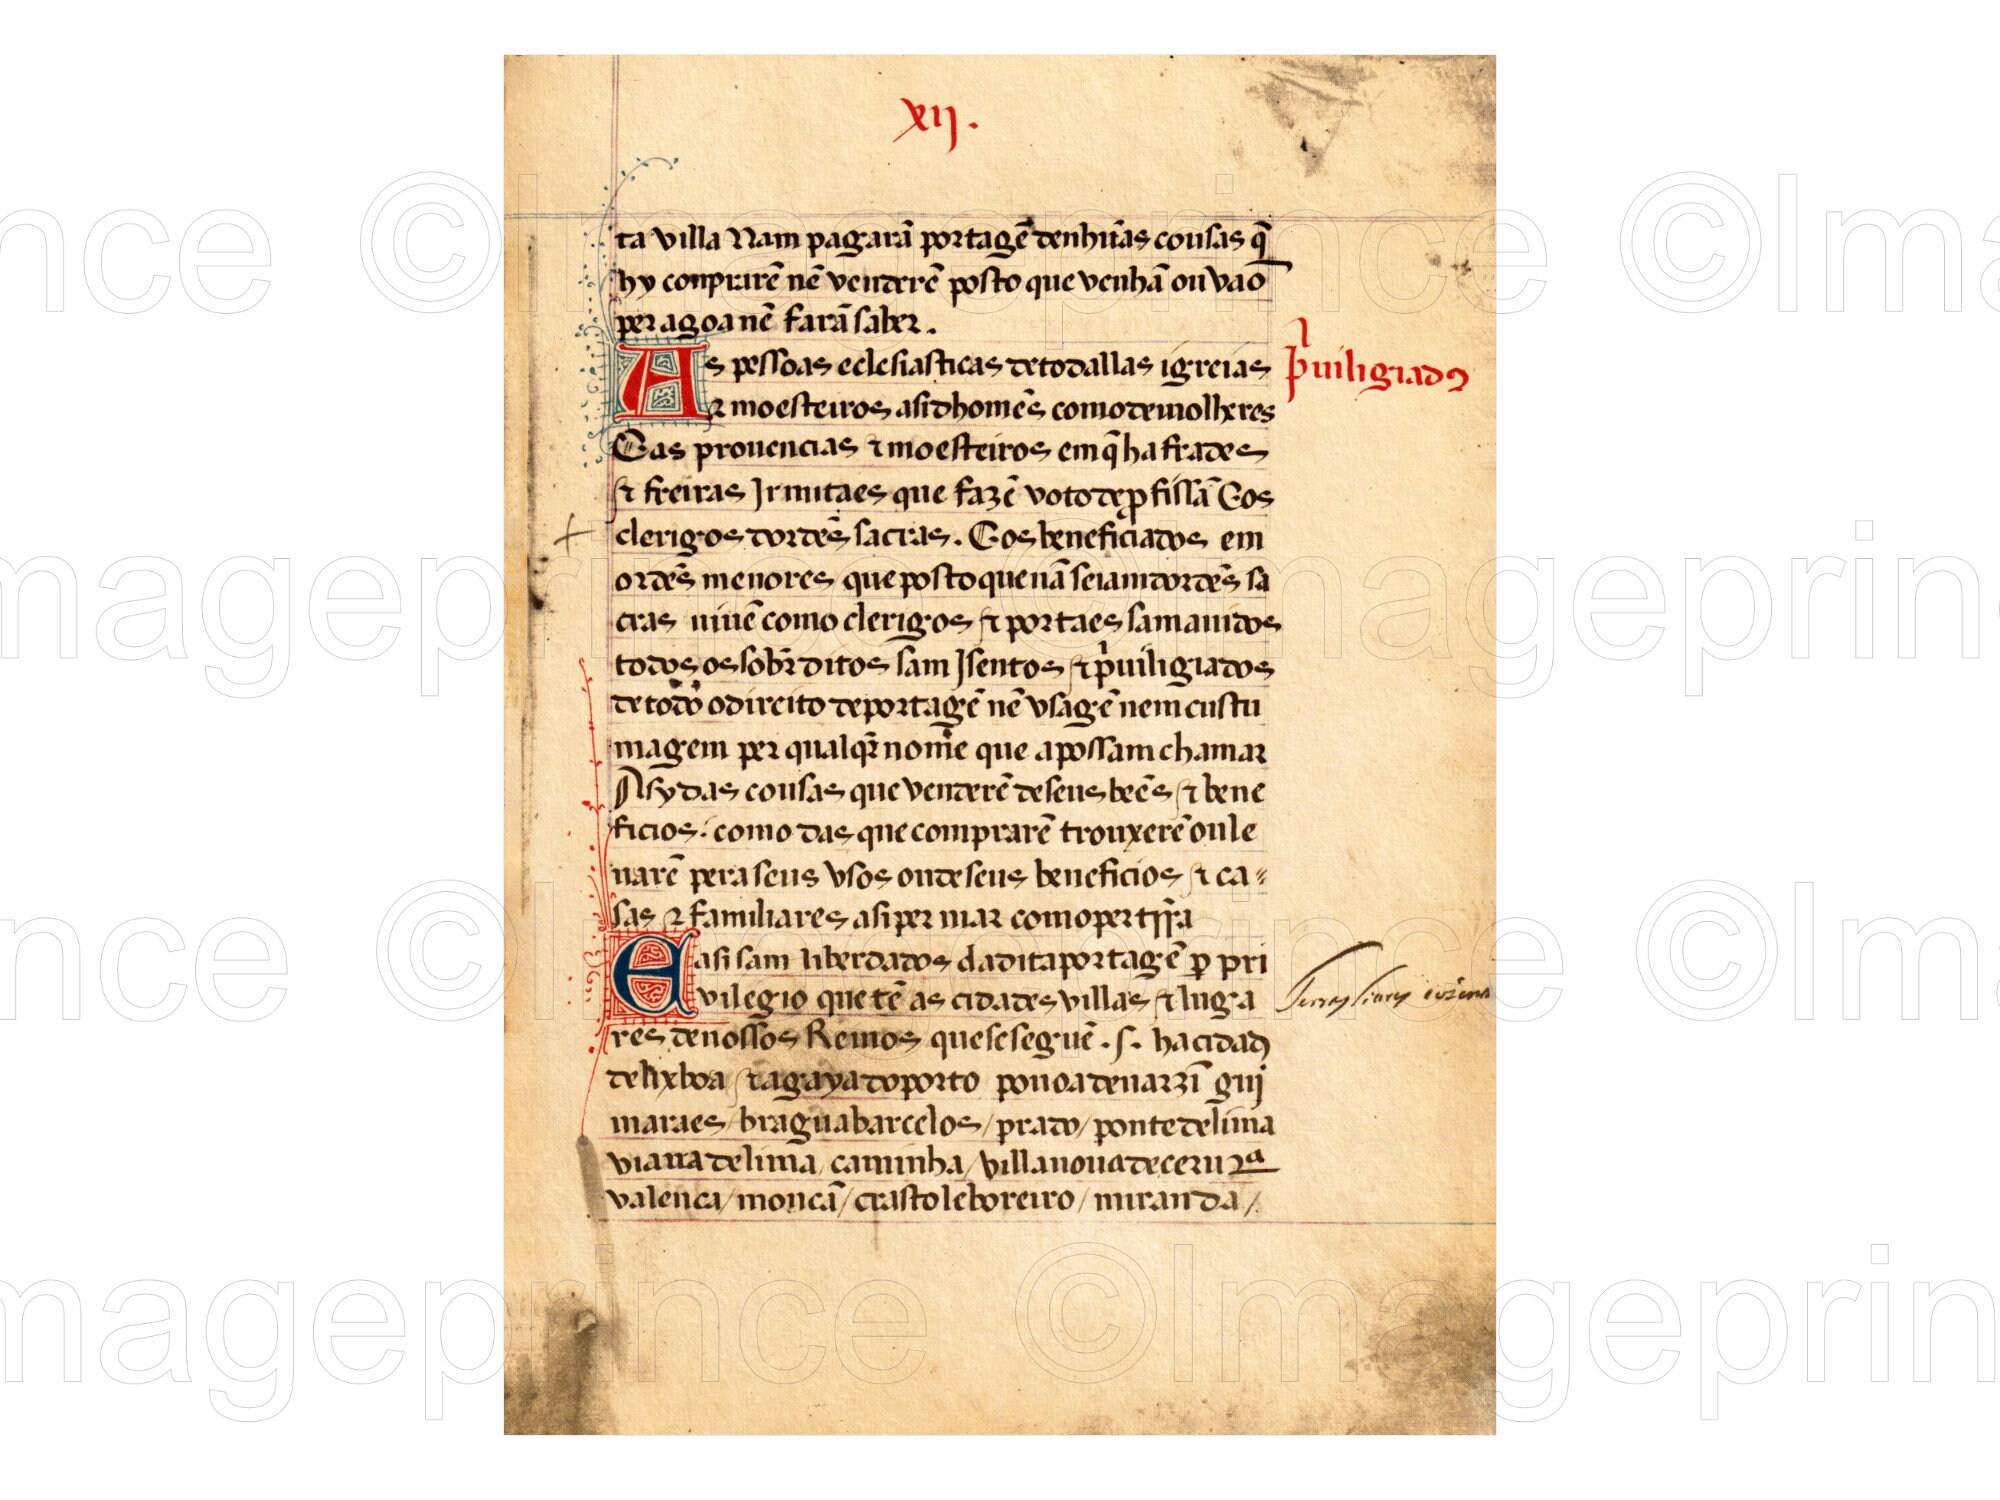 xij.
ta villa Nam pagarã portagẽ denhũas cousas q̃
hy conprarẽ nẽ venderẽ posto que venhã ou vaõ
per agoa nẽ farã saber.
As pessoas eclesiasticas de todallas igreias
⁊ moesteiros asi dhomẽs como de molheres
E as prouencias ⁊ moesteiros em q̃ ha frades
⁊ freiras Jrmitaes que fazẽ voto de ꝓfissã E os
clerigos dordẽs sacras. E os beneficiados em
ordẽs menores que posto que nã seiam dordẽs sa
cras viuẽ como clerigos ⁊ por taes sam auidos
todos os sobr̃ditos sam Jsentos ⁊ p'uiligiados
de todo o direito de portagẽ nẽ vsagẽ nem custu
magem per qualqr̃ nome que a possam chamar
Asy das cousas que venderẽ de seus beẽs ⁊ bene
ficios. como das que comprarẽ trouxerẽ ou le
uarẽ pera seus vsos ou de seus beneficios ⁊ ca=
sas ⁊ familiares asi per mar como per trr̃a
E asi sam liberdados da dita portagẽ ꝑ pri
vilegio que tẽ as cidades villas ⁊ luga
res de nossos Reinos que se seguẽ .s. ha cidad
de lixboa ⁊ a gaya do porto pouoa de uarzĩ gui
maraes / bragua barcelos / prado / ponte de lima
viana de lima / caminha / villa noua de ceru r.a
valenca / moncã / crasto leboreiro / miranda /
p'uiligiados